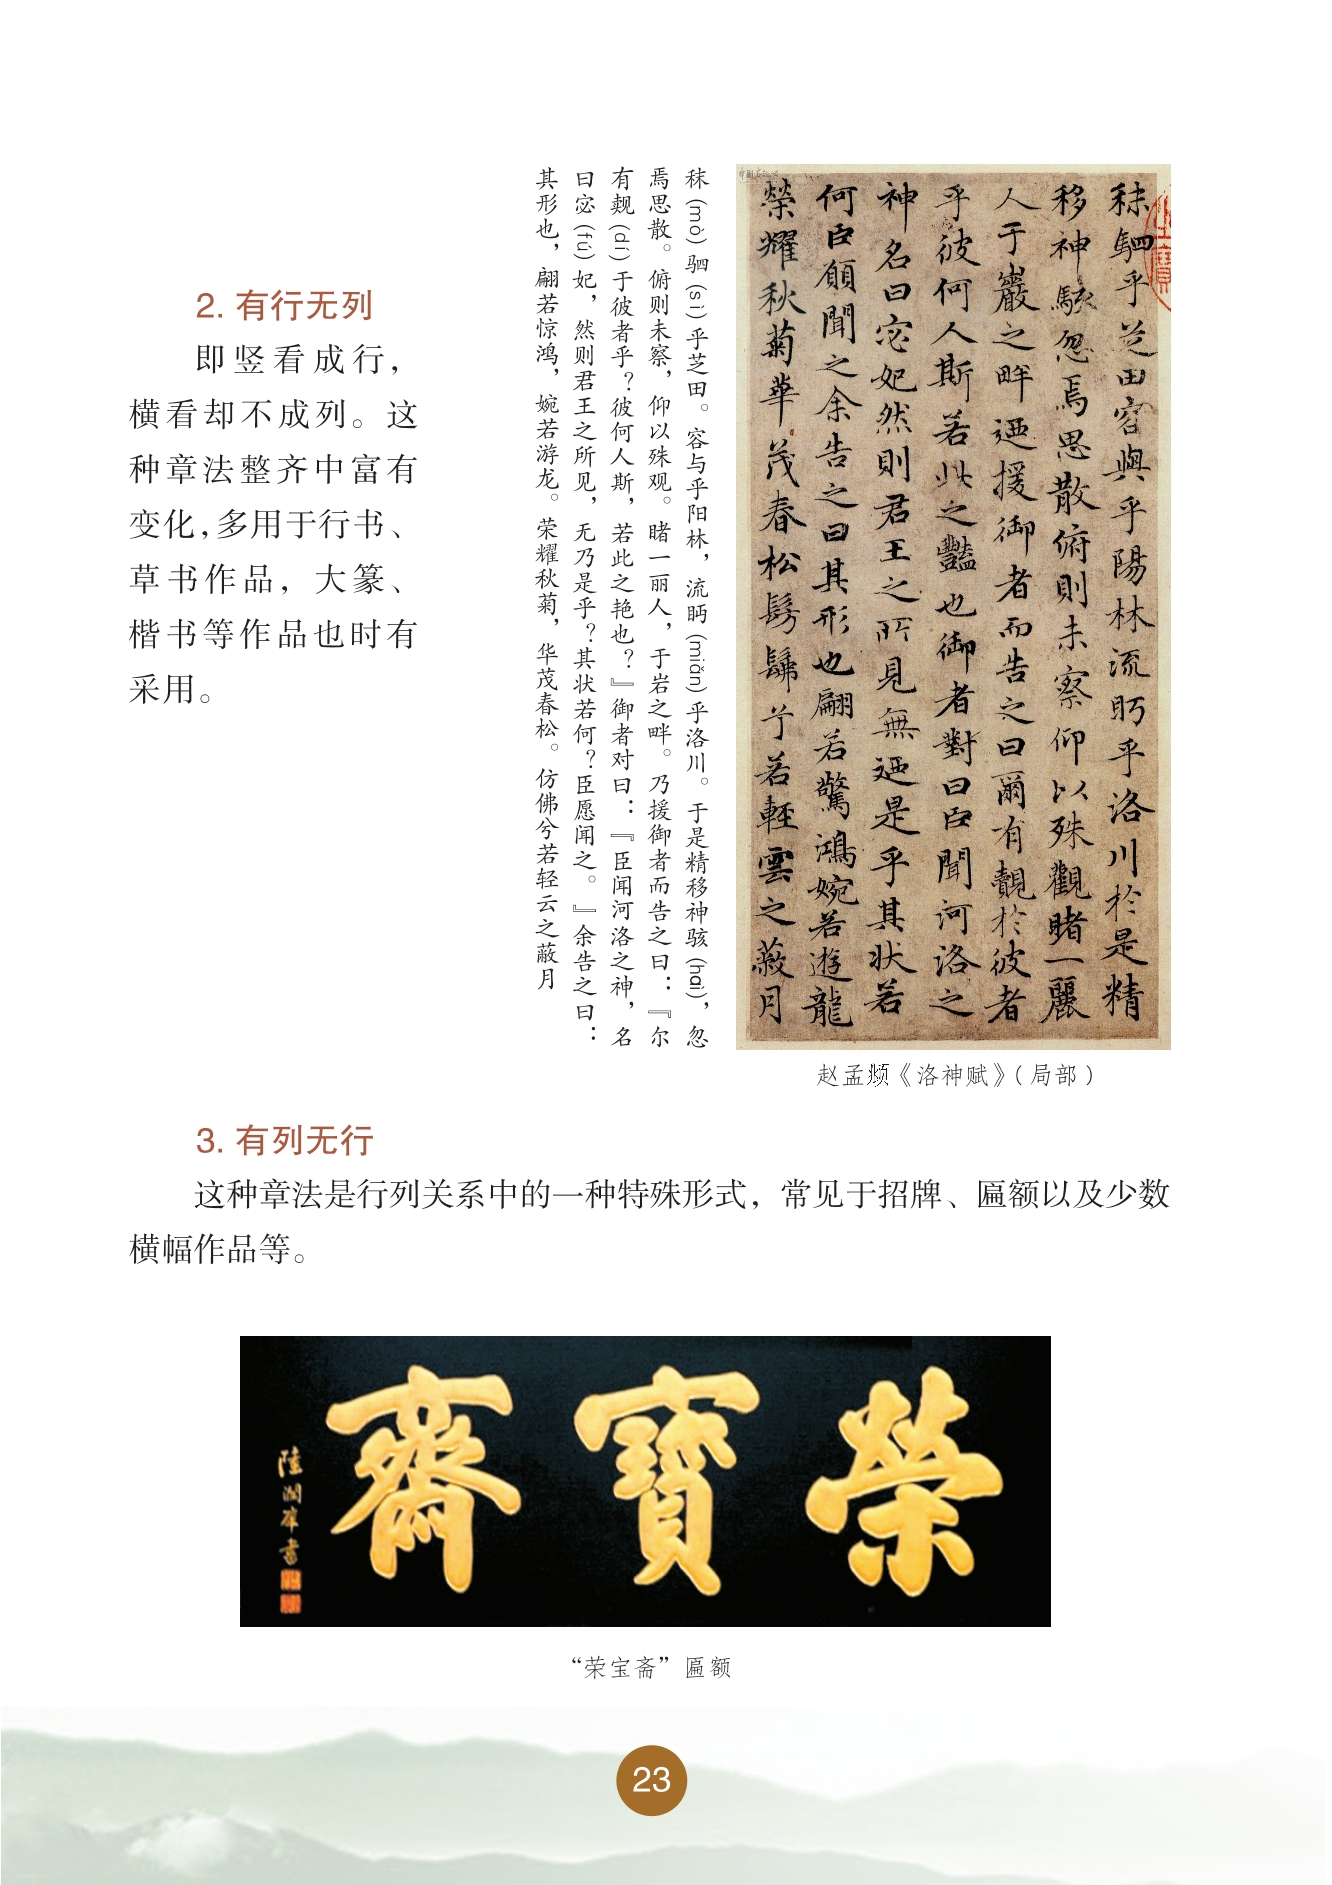 2. 有行无列
即竖看成行，
横看却不成列。这
种章法整齐中富有
变化，多用于行书、
草书作品，大篆、
楷书等作品也时有
采用。
秣（mò）驷（sì）乎芝田。容与乎阳林，流眄（miǎn）乎洛川。于是精移神骇（hài），忽
焉思散。俯则未察，仰以殊观。睹一丽人，于岩之畔。乃援御者而告之曰：『尔
有觌（dí）于彼者乎？彼何人斯，若此之艳也？』御者对曰：『臣闻河洛之神，名
曰宓（fú）妃，然则君王之所见，无乃是乎？其状若何？臣愿闻之。』余告之曰：
其形也，翩若惊鸿，婉若游龙。荣耀秋菊，华茂春松。仿佛兮若轻云之蔽月
秣駟乎芝田容與乎陽林流眄乎洛川於是精
移神駭忽焉思散俯則未察仰以殊觀睹一麗
人于巖之畔迺援御者而告之曰爾有覿於彼者
乎彼何人斯若此之豔也御者對曰臣聞河洛之
神名曰宓妃然則君王之所見無迺是乎其状若
何臣願聞之余告之曰其形也翩若驚鴻婉若遊龍
榮耀秋菊華茂春松髣髴兮若輕雲之蔽月
赵孟𫖯《洛神赋》（局部）
3. 有列无行
这种章法是行列关系中的一种特殊形式，常见于招牌、匾额以及少数
横幅作品等。
榮寶齋
陸潤庠書
“荣宝斋”匾额
23